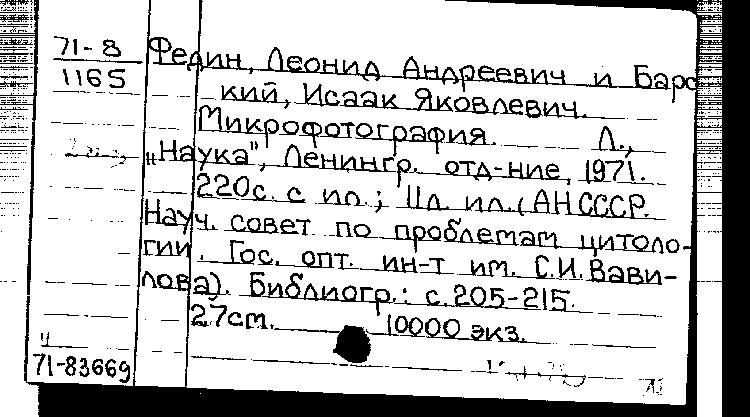 71-8
1165
Федин, Леонид Андреевич и Барс
кий, Исаак Яковлевич.
Микрофотография. Л.,
„Наука", Ленингр. отд-ние, 1971.
220с. с ил.; 11л. ил. (АН СССР.
Науч. совет по проблемам цитоло-
гии. Гос. опт. ин-т им. С.И. Вави-
лова). Библиогр.: с. 205-215.
27см. 10000 экз.
ч
71-83669